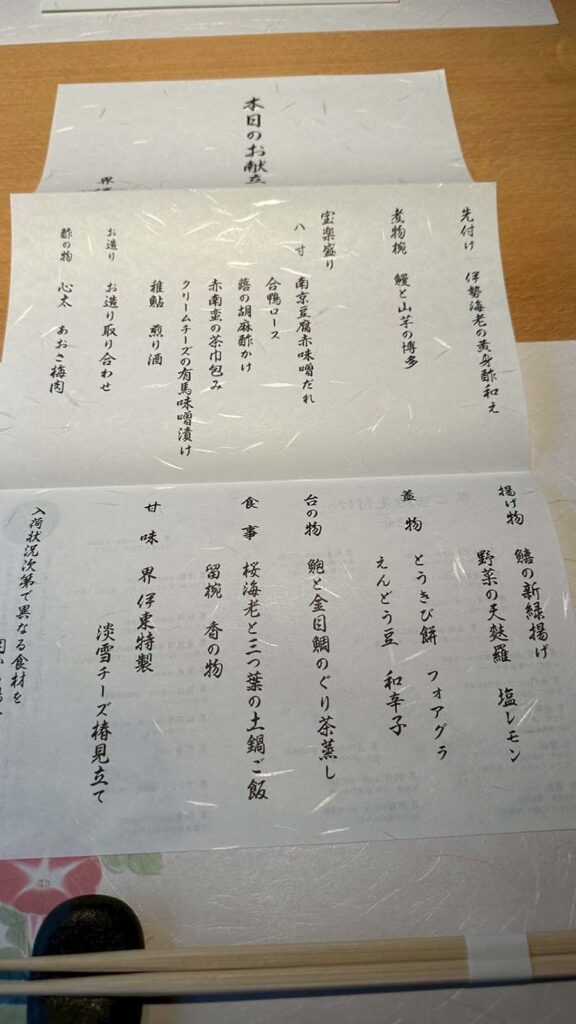 本日のお献立
界
先付け 伊勢海老の黄身酢和え
煮物椀 鰻と山芋の博多
宝楽盛り
八寸 南京豆腐赤味噌だれ
合鴨ロース
蕗の胡麻酢かけ
赤南蛮の茶巾包み
クリームチーズの有馬味噌漬け
稚鮎 煎り酒
お造り お造り取り合わせ
酢の物 心太 あおさ梅肉
揚げ物 鱚の新緑揚げ
野菜の天麩羅 塩レモン
蓋物 とうきび餅 フォアグラ
えんどう豆 和辛子
台の物 鮑と金目鯛のぐり茶蒸し
食事 桜海老と三つ葉の土鍋ご飯
留椀 香の物
甘味 界 伊東特製
淡雪チーズ椿見立て
入荷状況次第で異なる食材を